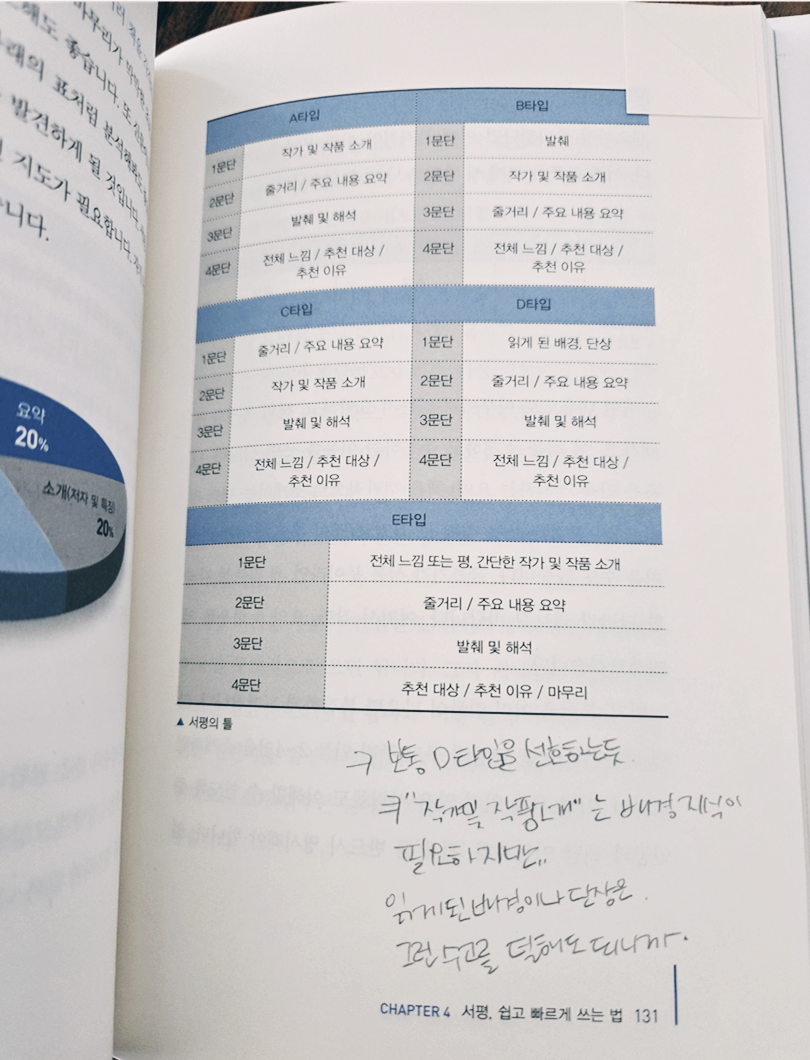 마무리가
해도 좋습니다. 또
래의 표처럼 분석해보도
발견하게 될 것입니다.
지도가 필요합니다.
니다.
요약
20%
소개(저자 및 특징)
20%
A타입
1문단 작가 및 작품 소개
2문단 줄거리 / 주요 내용 요약
3문단 발췌 및 해석
4문단 전체 느낌 / 추천 대상 /
추천 이유
B타입
1문단 발췌
2문단 작가 및 작품 소개
3문단 줄거리 / 주요 내용 요약
4문단 전체 느낌 / 추천 대상 /
추천 이유
C타입
1문단 줄거리 / 주요 내용 요약
2문단 작가 및 작품 소개
3문단 발췌 및 해석
4문단 전체 느낌 / 추천 대상 /
추천 이유
D타입
1문단 읽게 된 배경, 단상
2문단 줄거리 / 주요 내용 요약
3문단 발췌 및 해석
4문단 전체 느낌 / 추천 대상 /
추천 이유
E타입
1문단 전체 느낌 또는 평, 간단한 작가 및 작품 소개
2문단 줄거리 / 주요 내용 요약
3문단 발췌 및 해석
4문단 추천 대상 / 추천 이유 / 마무리
▲ 서평의 틀
보통 D타입을 선호하는듯
"작가및 작품소개"는 배경지식이
필요하지만..
읽게된 배경이나 단상은
그런 수고를 덜해도 되니까.
CHAPTER 4 서평, 쉽고 빠르게 쓰는 법 131